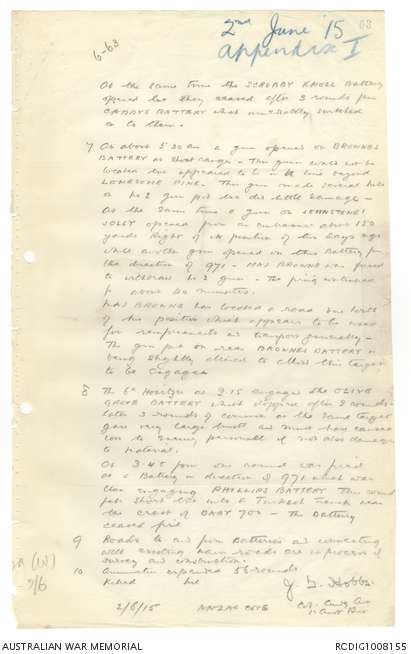 2nd June '15
Appendix I
63
6-63
At the same time the SCRUBBY KNOLL Battery
opened but they ceased after 3 rounds from
CADDYS BATTERY which immediately switched
on to them.
7 At about 5.30 am a gun opened on BROWNES
BATTERY at short range - This gun could not be
located but appeared to be in the line beyond
LONESOME PINE. This gun made several hits
on No 2 gun pit but did little damage -
At the same time a gun on JOHNSTONES'
JOLLY opened from an embrasure about 150
yards Right of the position of two days ago
while another gun opened on this Battery from
the direction of 971 - MAJ BROWNE was forced
to withdraw No 2 gun - The firing continued
for about 40 minutes.
MAJ BROWNE has located a road South
of his position which appears to be used
for reinforcements and transport generally -
The gun pit on rear BROWNES BATTERY is
being slightly altered to allow this target
to be engaged
8 The 6" Howitzer at 2.15 engaged the OLIVE
GROVE BATTERY which stopped after 2 rounds -
Later 3 rounds of common at the same target
gave very large bursts and must have caused
loss to enemy personnel if not also damage
to material.
At 3.45 pm one round was fired
at a Battery in direction of 971 which was
then engaging PHILLIPS BATTERY. This round
fell short but into a Turkish Trench near
the crest of BABY 700 - The Battery
ceased fire
9 Roads to and from Batteries and connecting
with existing main roads are in process of
survey and construction.
10 Ammunition expended 56 rounds
Killed Nil
J. T. Hobbs
Col. Comdg Arty
1st Aust Div
2/6/15 ANZAC COVE
2/6
AUSTRALIAN WAR MEMORIAL
RCDIG1008155